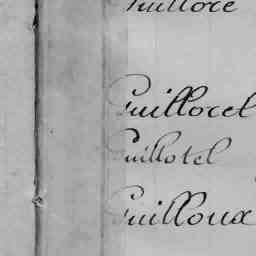 Guillore
Guillocel
Guillotel
Guilloux